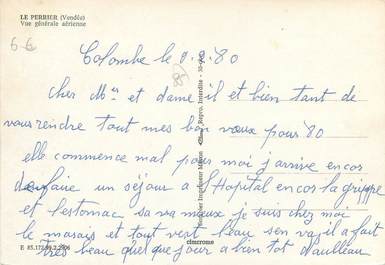 LE PERRIER (Vendée)
Vue générale aérienne
66
85
Colombe le 9.2.80
cher Mr et dame il et bien tant de
vous rendre tout mes bon vœux pour 80
elle commence mal pour moi j'arrive encor
faire un séjour a l'Hopital encor la grippe
et l'estomac sa va mieux je suis chez moi
le marais et tout vert beau sen va il a fait
très beau quelque jour a bien tot
cimcrome